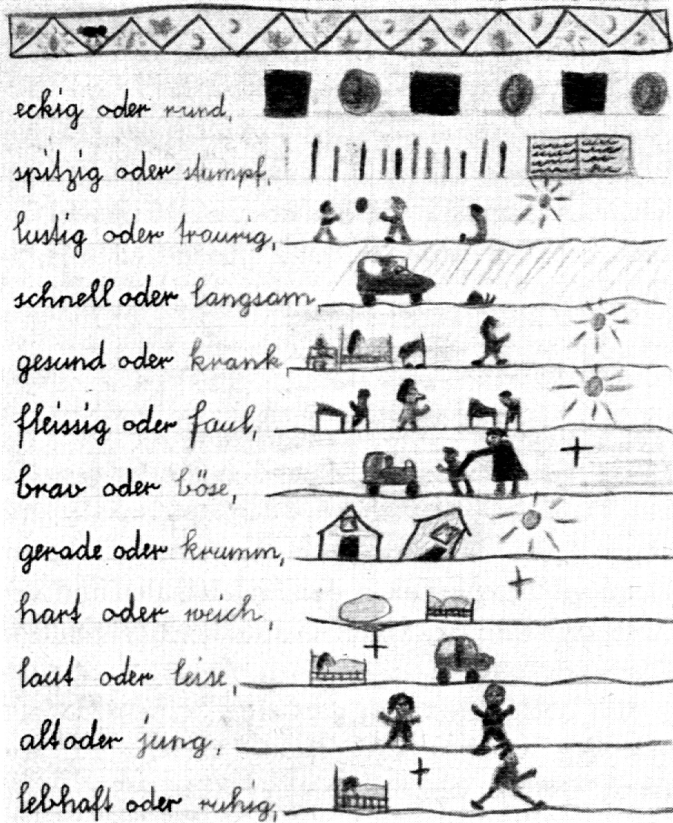 eckig oder rund,
spitzig oder stumpf,
lustig oder traurig,
schnell oder langsam
gesund oder krank
fleissig oder faul,
brav oder böse,
gerade oder krumm,
hart oder weich,
laut oder leise,
alt oder jung,
lebhaft oder ruhig,